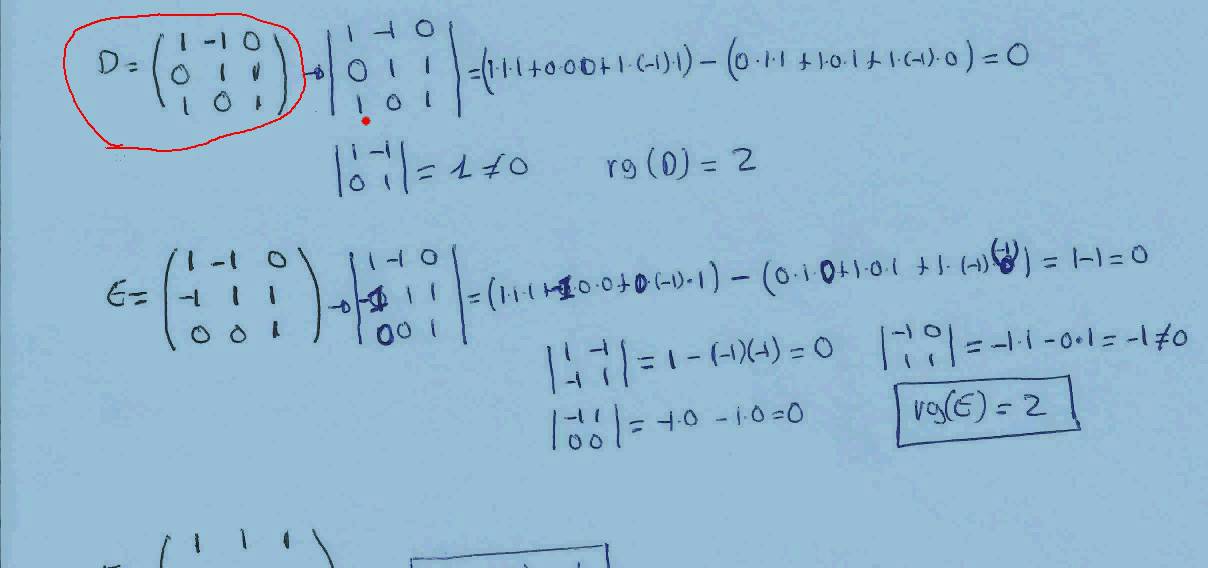 D = ( 1 -1 0 ; 0 1 1 ; 1 0 1 ) → | 1 -1 0 ; 0 1 1 ; 1 0 1 | = (1·1·1 + 0·0·0 + 1·(-1)·1) - (0·1·1 + 1·0·1 + 1·(-1)·0) = 0
| 1 -1 ; 0 1 | = 1 ≠ 0 rg(D) = 2
E = ( 1 -1 0 ; -1 1 1 ; 0 0 1 ) → | 1 -1 0 ; -1 1 1 ; 0 0 1 | = (1·1·1 + -1·0·0 + 0·(-1)·1) - (0·1·0 + 1·0·1 + 1·(-1)(-1)) = 1-1 = 0
| 1 -1 ; -1 1 | = 1 - (-1)(-1) = 0 | -1 0 ; 1 1 | = -1·1 - 0·1 = -1 ≠ 0
| -1 1 ; 0 0 | = -1·0 - 1·0 = 0 rg(E) = 2
1 1 1